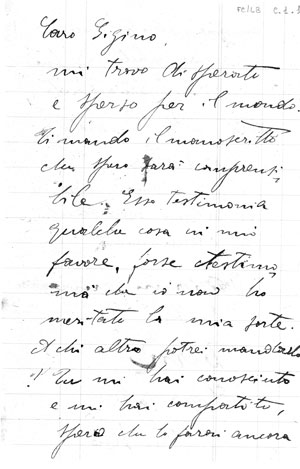 FC/LB C.1.1
Caro Gigino,
mi trovo disperato
e sperso per il mondo.
Ti mando il manoscritto
che spero sarà comprensi,
bile. Esso testimonia
qualche cosa in mio
favore, forse testimo,
nia che io non ho
meritato la mia sorte.
A chi altro potrei mandarlo
? Tu mi hai conosciuto
e mi hai compatito,
spero che lo farai ancora